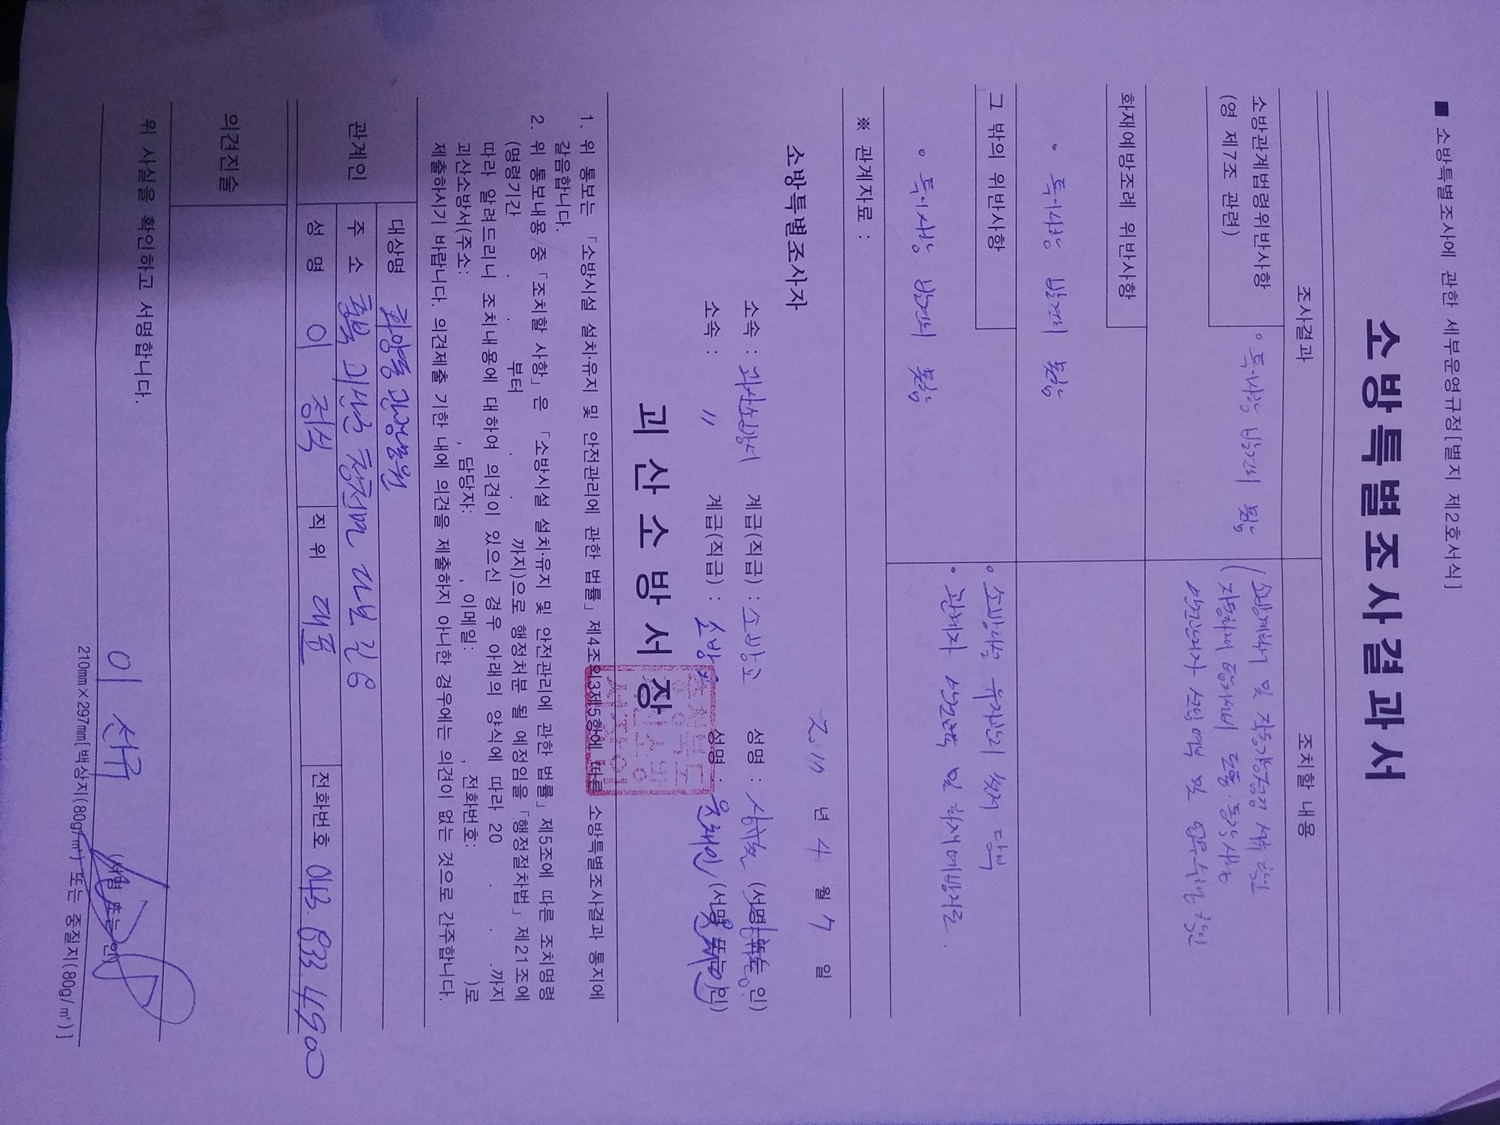 ■ 소방특별조사에 관한 세부운영규정[별지 제2호서식]
소방특별조사결과서
조사결과 조치할 내용
소방관계법령위반사항
(영 제7조 관련)
◦ 특이사항 발견치 못함
및 확인
자동화재탐지설비
안전관리자 선임여부 및 업무수행 확인
화재예방조례 위반사항
◦ 특이사항 발견치 못함
그 밖의 위반사항
◦ 특이사항 발견치 못함
◦ 소방시설 유지관리 철저 당부
◦ 관계자 안전교육 및 화재예방지도.
※ 관계자료 :
년 4 월 일
소방특별조사자
소속 : 괴산소방서 계급(직급) : 소방교 성명 : (서명 또는 인)
소속 : 〃 계급(직급) : 소방 성명 : (서명 또는 인)
괴산소방서장
1. 위 통보는 「소방시설 설치·유지 및 안전관리에 관한 법률」 제4조의3제5항에 따른 소방특별조사결과 통지에
갈음합니다.
2. 위 통보내용 중 「조치할 사항」은 「소방시설 설치·유지 및 안전관리에 관한 법률」 제5조에 따른 조치명령
(명령기간 . . 부터 . . 까지)으로 행정처분 될 예정임을 「행정절차법」 제21조에
따라 알려드리니 조치내용에 대하여 의견이 있으신 경우 아래의 양식에 따라 20 . . .까지
괴산소방서(주소: , 담당자: , 이메일: , 전화번호: )로
제출하시기 바랍니다. 의견제출 기한 내에 의견을 제출하지 아니한 경우에는 의견이 없는 것으로 간주합니다.
관계인
대상명
주 소 충북 괴산군 청천면
성 명 이 정식 직 위 대표 전화번호 043 833 4900
의견진술
위 사실을 확인하고 서명합니다.
이 (서명 또는 인)
210mm×297mm[백상지(80g/㎡) 또는 중질지(80g/㎡)]